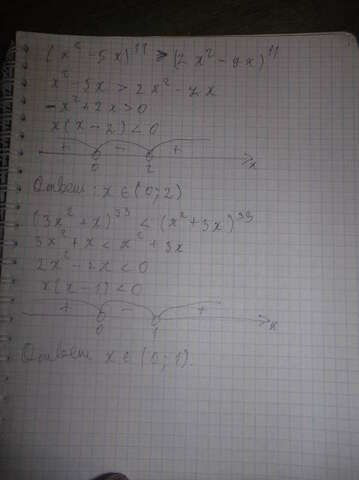 (x² - 5x)¹¹ > (2x² - 7x)¹¹
x² - 5x > 2x² - 7x
-x² + 2x > 0
x(x - 2) < 0
+ - +
0 2 x
Ответ: x ∈ (0; 2)
(3x² + x)³³ < (x² + 3x)³³
3x² + x < x² + 3x
2x² - 2x < 0
x(x - 1) < 0
+ - +
0 1 x
Ответ: x ∈ (0; 1).